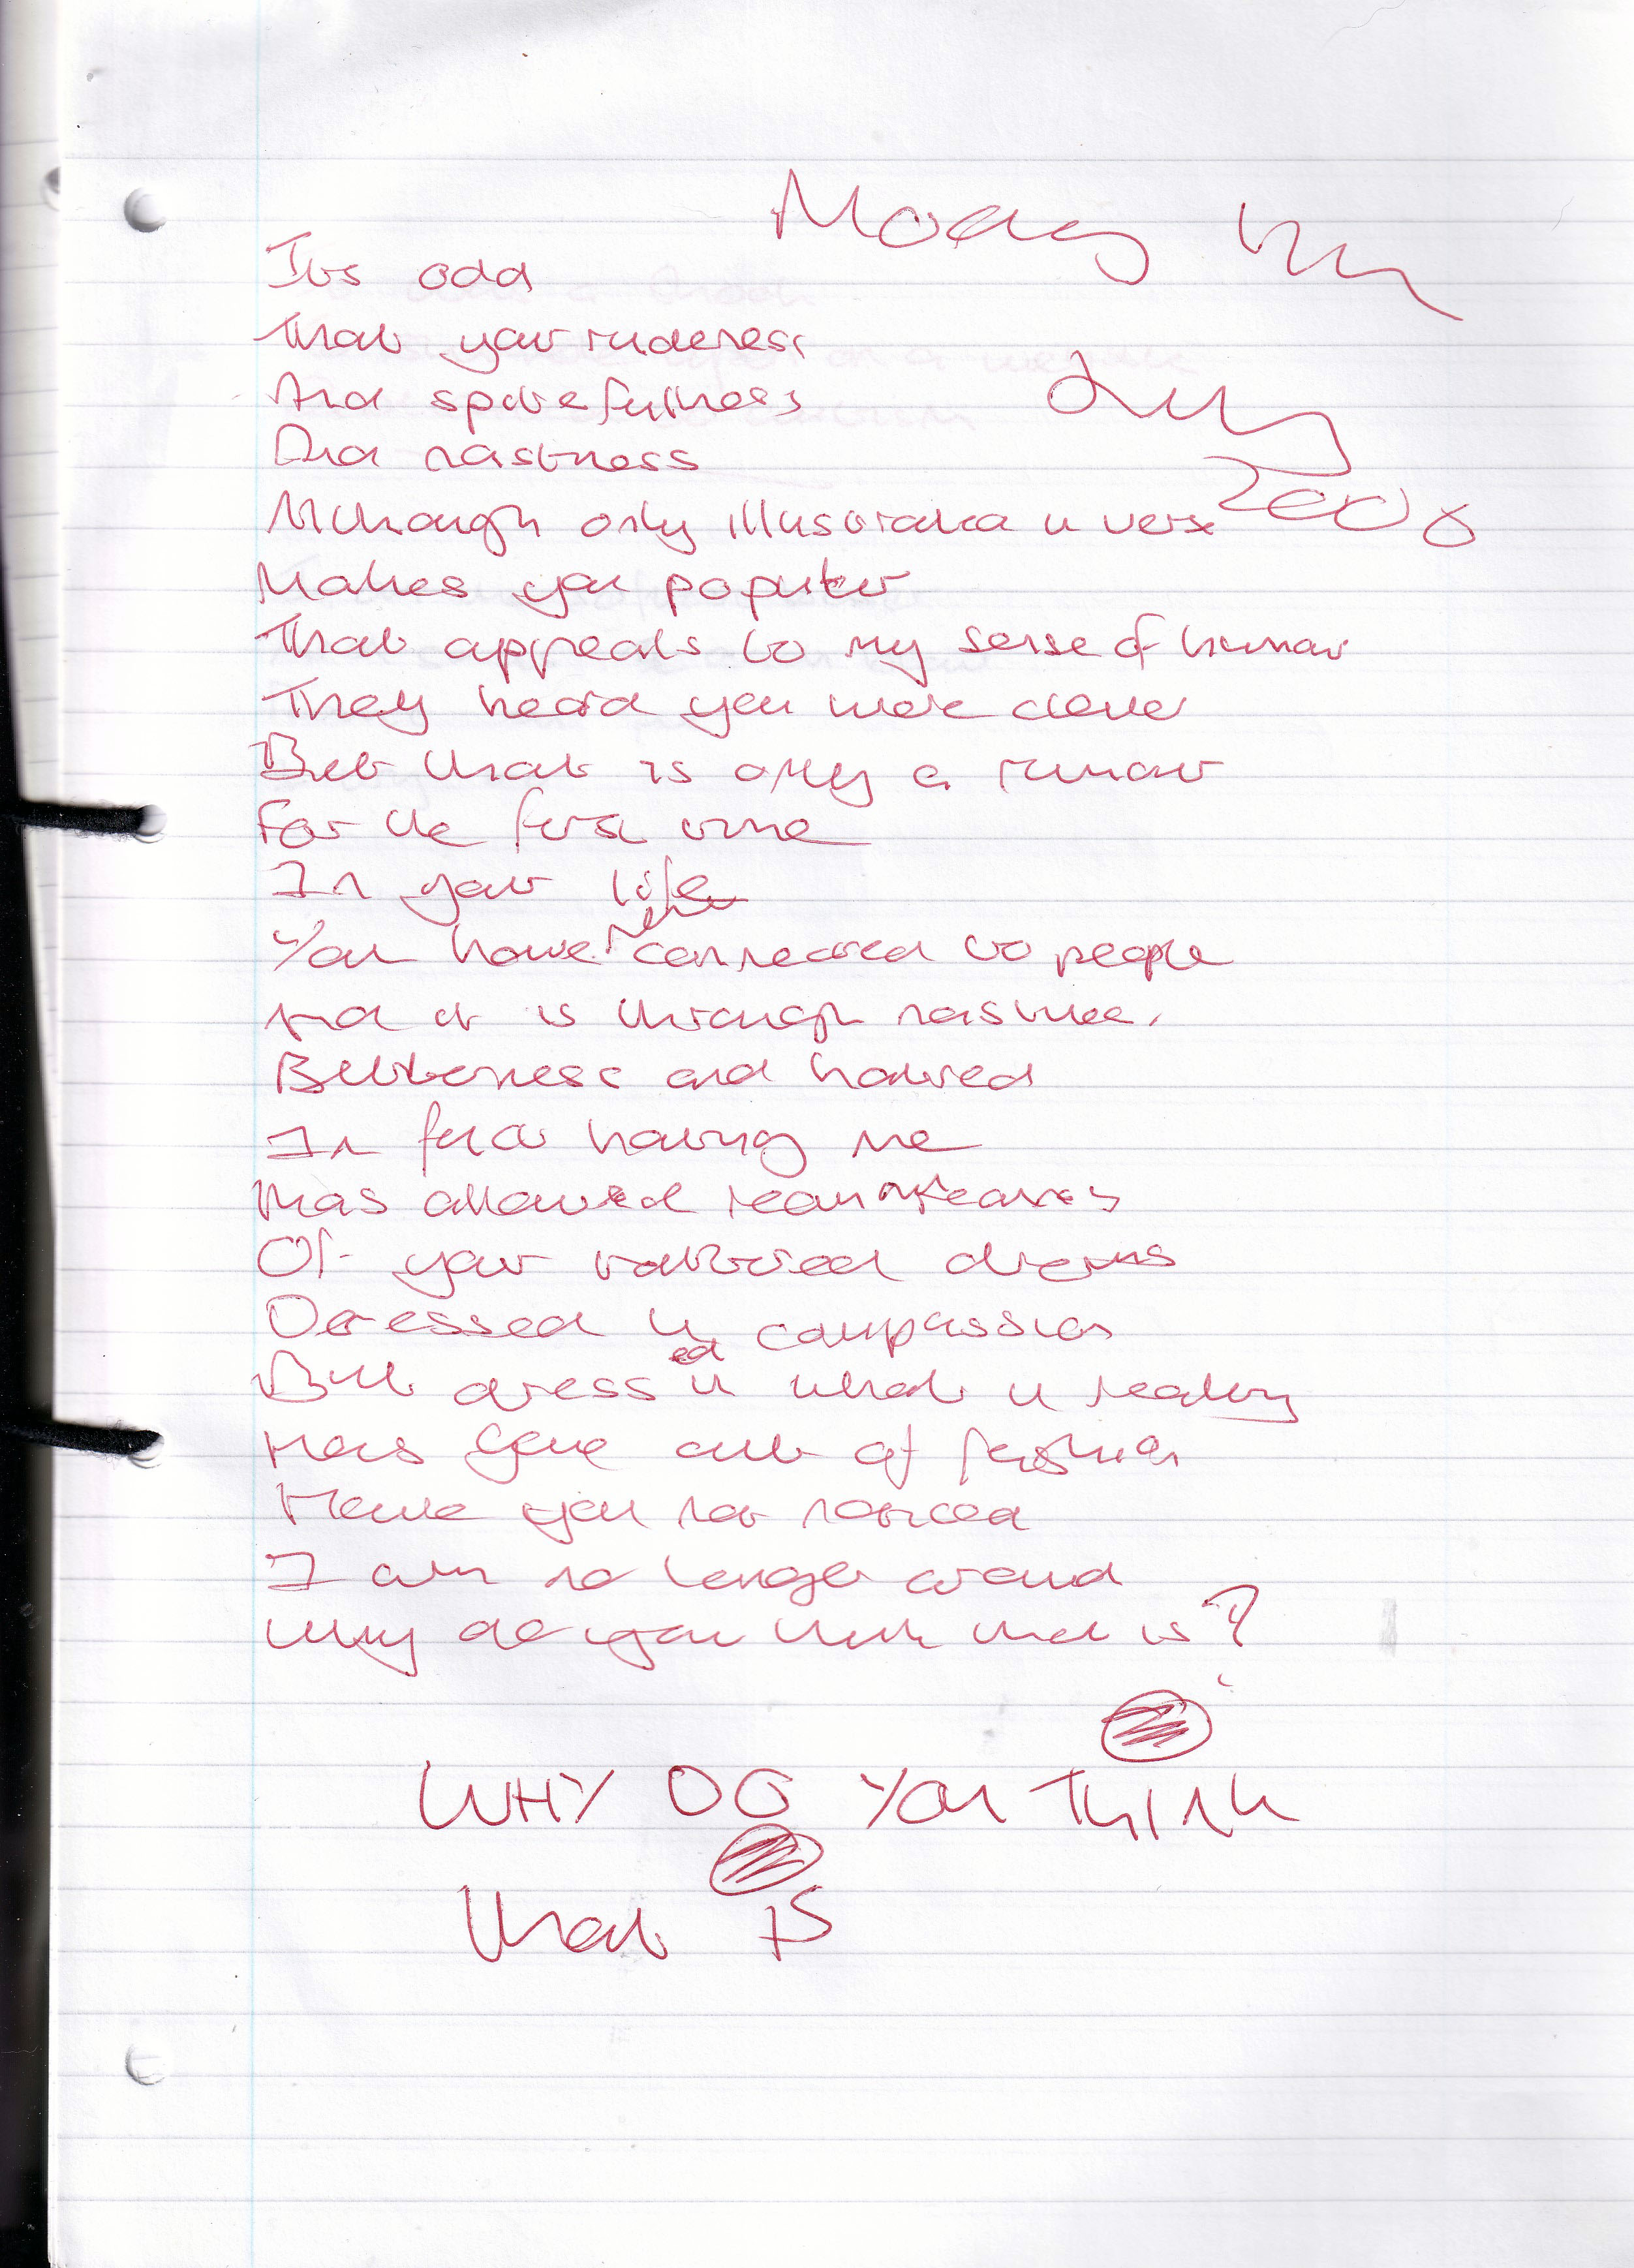 Monday 7th
July
2008
Its odd
That your rudeness
And spitefullness
And nastness
Although only illustrated in verse
Makes you popular
That appeals to my sense of humour
They heard you were clever
But that is only a rumour
For the first time
In your life
You have never connected to people
And it is through nastiness,
Bitterness and hatred
In fact having me
Has allowed
Of your dreams
Dressed in compassion
But dressed in what is reality
Has gone out of fashion
Have you not noticed
I am no longer around
Why do you think that is?
WHY DO YOU THINK
that IS